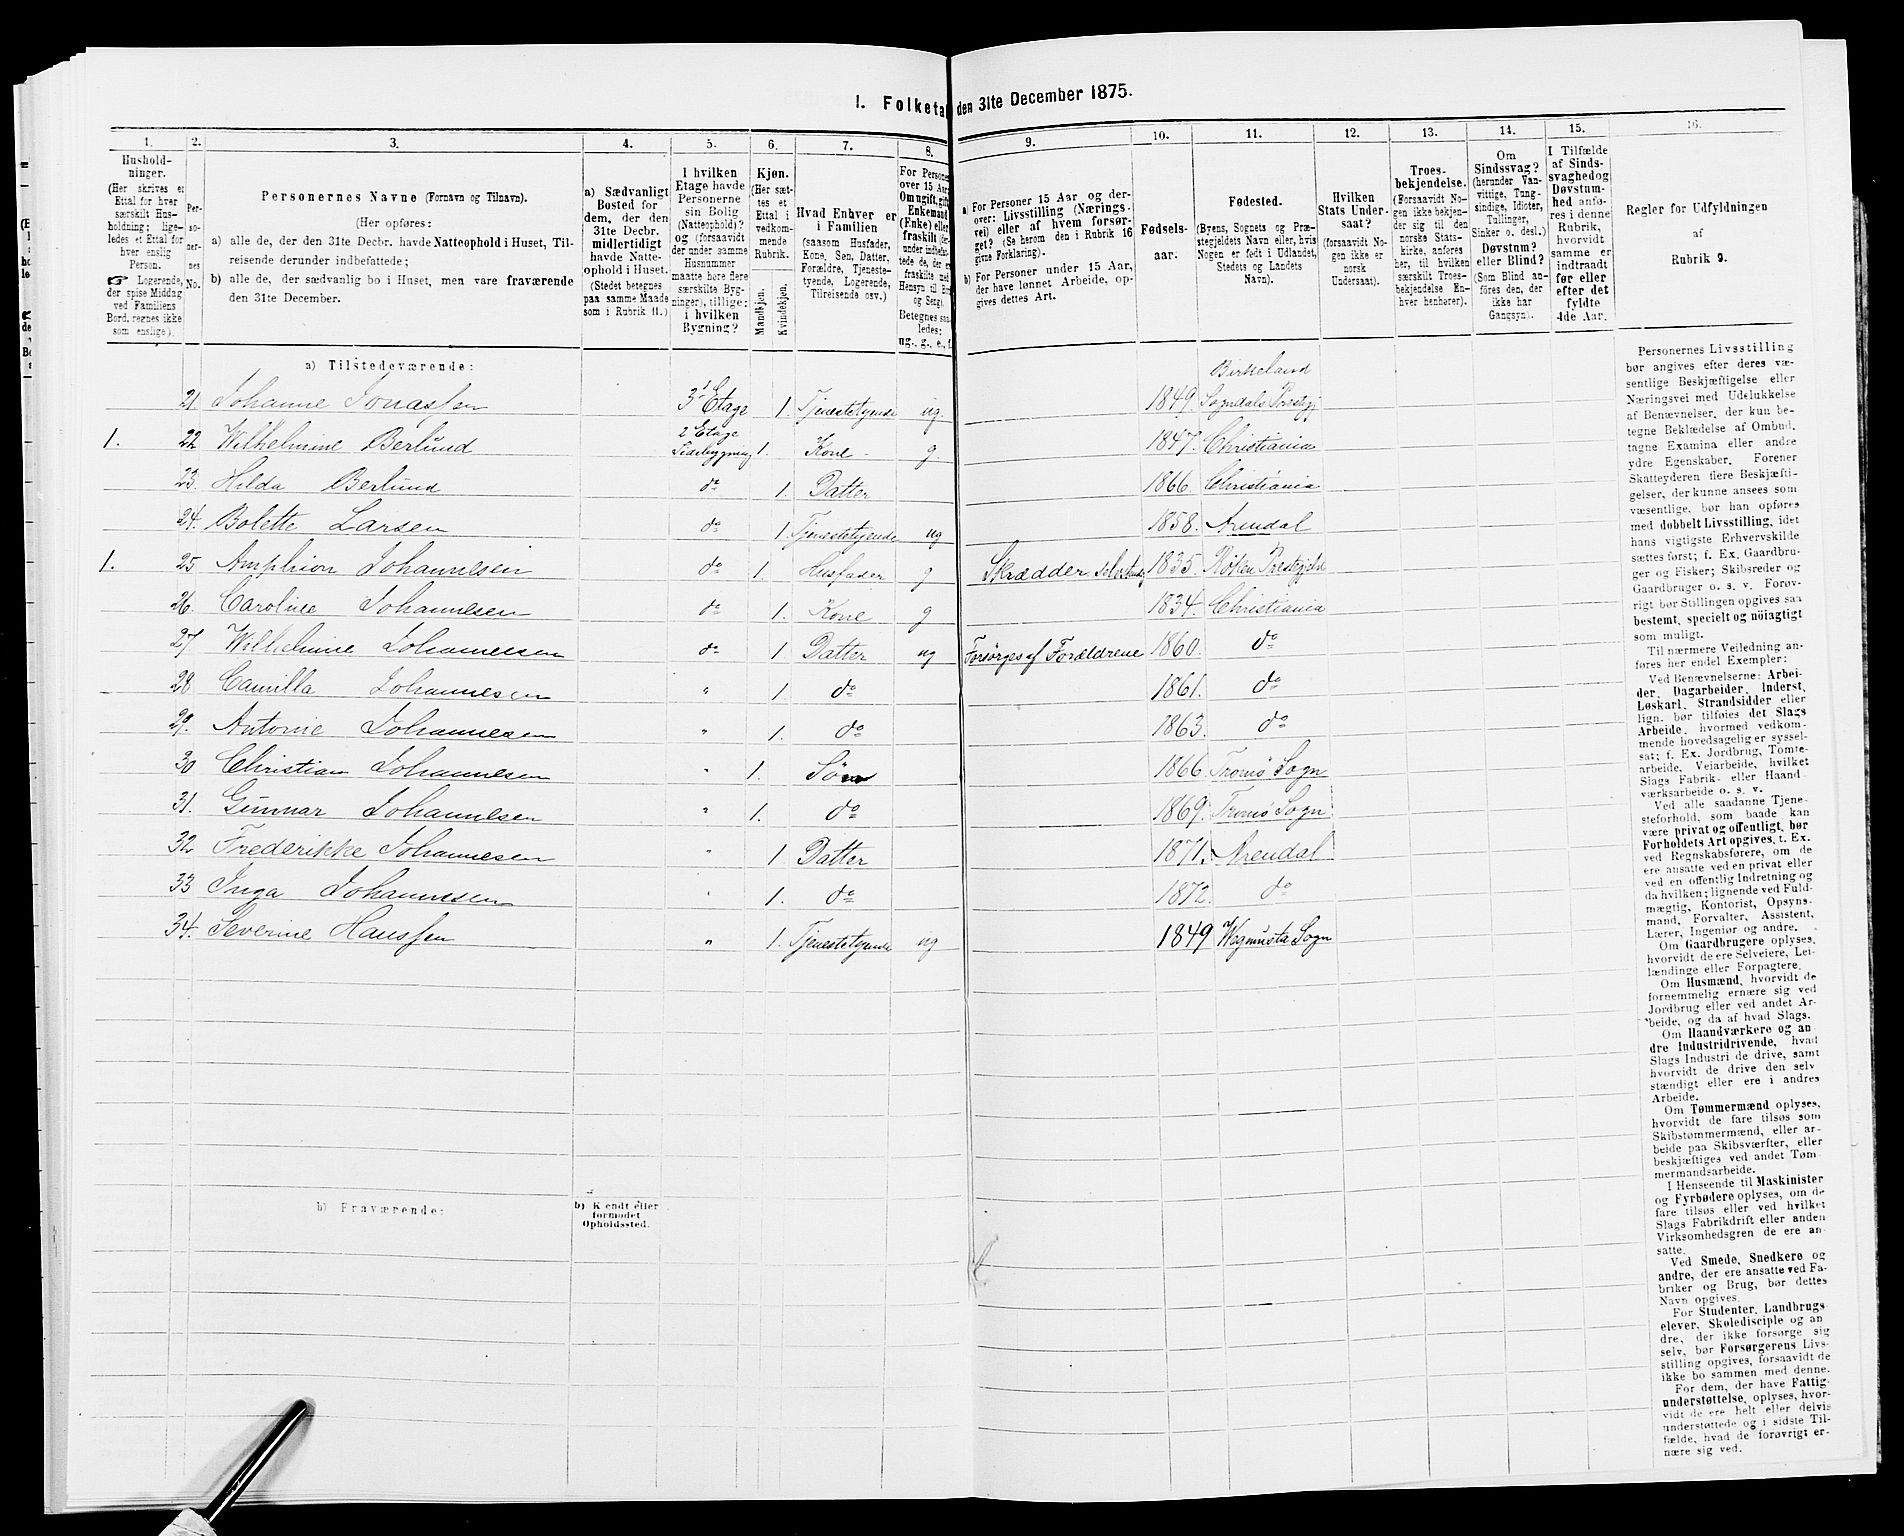 1. Folketal den 31te December 1875.
1. 2. 3. 4. 5. 6. 7. 8. 9. 10. 11. 12. 13. 14. 15. 16.
Hushold-
ninger.
(Her skrives et
Ettal for hver
særskilt Hus-
holdning; lige-
ledes et Ettal for
hver enslig
Person.
☞ Logerende,
der spise Middag
ved Familiens
Bord, regnes ikke
som enslige).
Per-
so-
ner-
nes
No.
Personernes Navne (Fornavn og Tilnavn).
(Her opføres:
a) alle de, der den 31te Decbr. havde Natteophold i Huset, Til-
reisende derunder indbefattede;
b) alle de, der sædvanlig bo i Huset, men vare fraværende
den 31te December.
a) Sædvanligt
Bosted for
dem, der den
31te Decbr.
midlertidigt
havde Natte-
ophold i Huset.
(Stedet betegnes
paa samme Maade
som i Rubrik 11.)
I hvilken
Etage havde
Personerne
sin Bolig
(Natteophold)?
og (forsaavidt
der under samme
Husnummer
maatte høre flere
særskilte Byg-
ninger), tillige:
i hvilken
Bygning?
Kjøn.
(Her sæt-
tes et
Ettal i
vedkom-
mende
Rubrik.
Mandkjøn.
Kvindekjøn.
Hvad Enhver er
i Familien
(saasom Husfader,
Kone, Søn, Datter,
Forældre, Tjeneste-
tyende, Logerende,
Tilreisende osv.)
For Personer
over 15 Aar:
Om ugift, gift,
Enkemand
(Enke) eller
fraskilt
Betegnes saa-
ledes:
ug., g., e., f.
a) For Personer 15 Aar og der-
over: Livsstilling (Nærings-
vei) eller af hvem forsør-
get? (Se herom den i Rubrik 16
givne Forklaring).
b) For Personer under 15 Aar,
der have lønnet Arbeide, op-
gives dettes Art.
Fødsels-
aar.
Fødested.
(Byens, Sognets og Præ-
stegjeldets Navn eller, hvis
Nogen er født i Udlandet,
Stedets og Landets
Navn).
Hvilken
Stats Under-
saat?
(forsaavidt No-
gen ikke er
norsk
Undersaat).
Troes-
bekjendelse.
(Forsaavidt No-
gen ikke bekjen-
der sig til den
norske Stats-
kirke, anføres
her, til hvilken
særskilt Troes-
bekjendelse En-
hver henhører).
Om
Sindssvag?
(herunder Van-
vittige, Tung-
sindige, Idioter,
Tullinger,
Sinker o. desl.)
Døvstum?
eller Blind?
(Som Blind an-
føres den, der
ikke har
Gangsyn).
I Tilfælde
af Sinds-
svaghed og
Døvstum-
hed anfø-
res i denne
Rubrik,
hvorvidt
samme er
indtraadt
før eller
efter det
fyldte
4de Aar.
Regler for Udfyldningen
af
Rubrik 9.
a) Tilstedeværende:
21 Johanne Jonassen 3die Etage 1. Tjenestetyende ug. 1849. Birkeland Sogndals Prestgj
1. 22 Wilhelmine Berlund 2 Etage Sidebygning 1. Kone g. 1847. Christiania
23. Hilda Berlund do 1. Datter 1866. Christiania
24. Bolette Larsen do 1. Tjenestetyende ug 1858. Arendal
1. 25 Amphion Johannesen do 1. Husfader g Skrædder selvstændig 1835. Røken Prestgjeld
26. Caroline Johannesen do 1. Kone g 1834. Christiania
27 Wilhelmine Johannesen do 1. Datter ug Forsørges af Forældrene 1860. do
28 Camilla Johannesen " 1. do 1861. do
29. Antonie Johannesen " 1. do 1863. do
30 Christian Johannesen " 1. Søn 1866. Tromø Sogn
31. Gunnar Johannesen " 1. do 1869. Tromø Sogn
32 Frederikke Johannesen " 1 Datter 1871. Arendal
33 Inga Johannesen " 1. do 1872. do
34. Severine Hanssen " 1. Tjenestetyende ug 1849 Sogn
b) Fraværende:
b) Kendt eller
formodet
Opholdssted.
Personernes Livsstilling
bør angives efter deres væ-
sentlige Beskjæftigelse eller
Næringsvei med Udelukkelse
af Benævnelser, der kun be-
tegne Beklædelse af Ombud,
tagne Examina eller andre
ydre Egenskaber. Forener
Skatteyderen flere Beskjæfti-
gelser, der kunne ansees som
væsentlige, bør han opføres
med dobbelt Livsstilling, idet
hans vigtigste Erhvervskilde
sættes først; f. Ex. Gaardbru-
ger og Fisker; Skibsreder og
Gaardbruger o. s. v. Forøv-
rigt bør Stillingen opgives saa
bestemt, specielt og nöiagtigt
som muligt.
Til nærmere Veiledning an-
føres her endel Exempler:
Ved Benævnelserne: Arbei-
der, Dagarbeider, Inderst,
Løskarl, Strandsidder eller
lign. bør tilføies det Slags
Arbeide, hvormed vedkom-
mende hovedsagelig er syssel-
sat; f. Ex. Jordbrug, Tomte-
arbeide, Veiarbeide, hvilket
Slags Fabrik- eller Haand-
værksarbeide o. s. v.
Ved alle saadanne Tjene-
steforhold, som baade kan
være privat og offentligt, bør
Forholdets Art opgives, t. Ex.
ved Regnskabsførere, om de
ere ansatte ved en privat eller
ved en offentlig Indretning og
da hvilken; lignende ved Fuld-
mægtig, Kontorist, Opsyns-
mand, Forvalter, Assistent,
Lærer, Ingeniør og andre.
Om Gaardbrugere oplyses,
hvorvidt de ere Selveiere, Lei-
lændinge eller Forpagtere.
Om Husmænd, hvorvidt de
fornemmelig ernære sig ved
Jordbrug eller ved andet Ar-
beide, og da af hvad Slags.
Om Haandværkere og an
dre Industridrivende, hvad
Slags Industri de drive, samt
hvorvidt de drive den selv
stændigt eller ere i andres
Arbeide.
Om Tømmermænd oplyses,
hvorvidt de fare tilsøs som
Skibstømmermænd, eller ar-
beide paa Skibsværfter, eller
beskjæftiges ved andet Tøm-
mermandsarbeide.
I Henseende til Maskinister
og Fyrbødere oplyses, om de
fare tilsøs eller ved hvilket
Slags Fabrikdrift eller anden
Virksomhedsgren de ere an-
satte.
Ved Smede, Snedkere og
andre, der ere ansatte ved Fa-
briker og Brug, bør dettes
Navn opgives.
For Studenter, Landbrugs
elever, Skoledisciple og an
dre, der ikke forsørge sig
selv, bør Forsørgerens Livs-
stilling opgives, forsaavidt de
ikke bo sammen med denne.
For dem, der have Fattig-
understøttelse, oplyses, hvor-
vidt de ere helt eller delvis
understøttede og i sidste Til-
fælde, hvad de forøvrigt er-
nære sig ved.